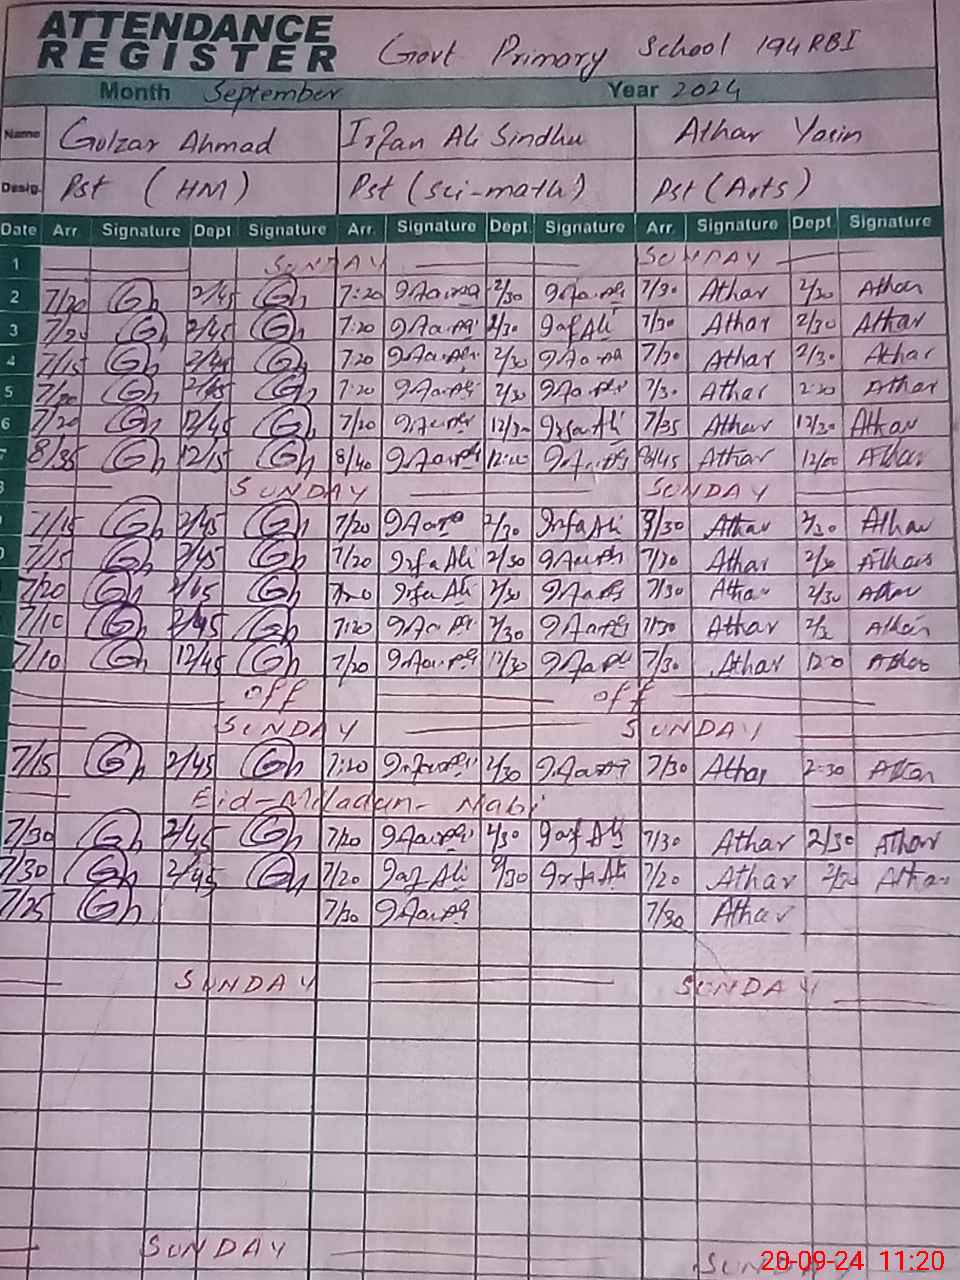 ATTENDANCE
REGISTER
Govt Primary School 194 RBI
Month September Year 2024
Name Gulzar Ahmad Irfan Ali Sindhu Athar Yasin
Desig. Pst (HM) Pst (Sci-math) Pst (Arts)
Date Arr. Signature Dept Signature Arr. Signature Dept. Signature Arr. Signature Dept Signature
1 SUNDAY SUNDAY
2 7/20 Gh 2/45 Gh 7:20 2/30 7/30 Athar 2/30 Athar
3 7/20 Gh 2/45 Gh 7:20 2/30 7/30 Athar 2/30 Athar
4 7/15 Gh 2/45 Gh 7:20 2/30 7/30 Athar 2/30 Athar
5 7/20 Gh 2/45 Gh 7:20 2/30 7/30 Athar 2:30 Athar
6 7/20 Gh 12/45 Gh 7/20 12/30 7/35 Athar 12/30 Athar
7 8/35 Gh 12/15 Gh 8/40 8/45 Athar 12/00 Athar
SUNDAY SUNDAY
7/15 Gh 2/45 Gh 7/20 2/30 Irfa Ali Athar 2/30 Athar
7/15 Gh 2/45 Gh 7/20 Irfa Ali 2/30 7/30 Athar 2/30 Athar
7/20 Gh 2/45 Gh 7:20 Irfa Ali 2/30 7/30 Athar 2/30 Athar
7/10 Gh 2/45 Gh 7:20 2/30 7/30 Athar Athar
7/10 Gh 12/45 Gh 7/20 12/30 7/30 Athar Athar
off off
SUNDAY SUNDAY
7/15 Gh 2/45 Gh 7:20 2/30 7/30 Athar 2:30 Athar
Eid-Miladun-Nabi
7/30 Gh 2/45 Gh 7/20 2/30 7/30 Athar 2/30 Athar
7/30 Gh 2/45 Gh 7/20 Irfa Ali 7/20 Athar Athar
7/25 Gh 7/30 7/30 Athar
SUNDAY SUNDAY
SUNDAY
20-09-24 11:20